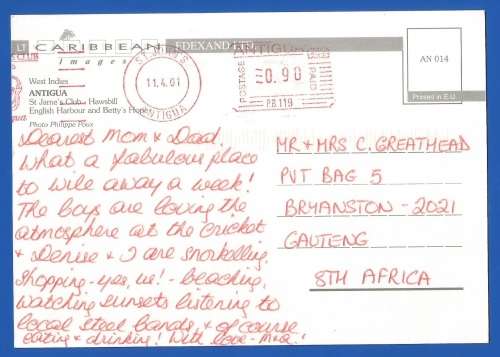 LT CARIBBEAN EDEXAND LTD.
Images
West Indies
ANTIGUA
St Jame's Club - Hawsbill
English Harbour and Betty's Hope
Photo Philippe
ST. JOHN'S
11.4.01
ANTIGUA
ANTIGUA
POSTAGE
0.90
PAID
PB 119
AN 014
Printed in E.U.
Dearest Mom & Dad.
What a fabulous place
to wile away a week!
The boys are loving the
atmosphere at the cricket
& Denise & I are snorkelling,
shopping - yes, us! - beaching,
watching sunsets listening to
local steel bands & of course
eating & drinking! With love -
MR & MRS C. GREATHEAD
PVT BAG 5
BRYANSTON - 2021
GAUTENG
STH AFRICA